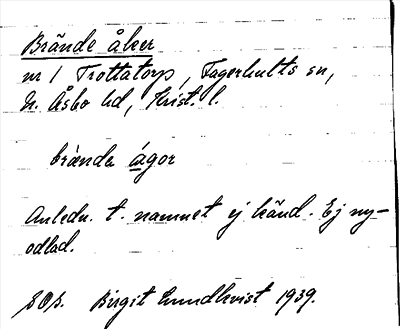 Brände åker
nr 1 Trottatorp, Fagerhults sn,
N. Åsbo hd, Krist. l.
brända ågor
Anledn. t. namnet ej känd. Ej ny-
odlad.
Birgit Lundkvist 1939.